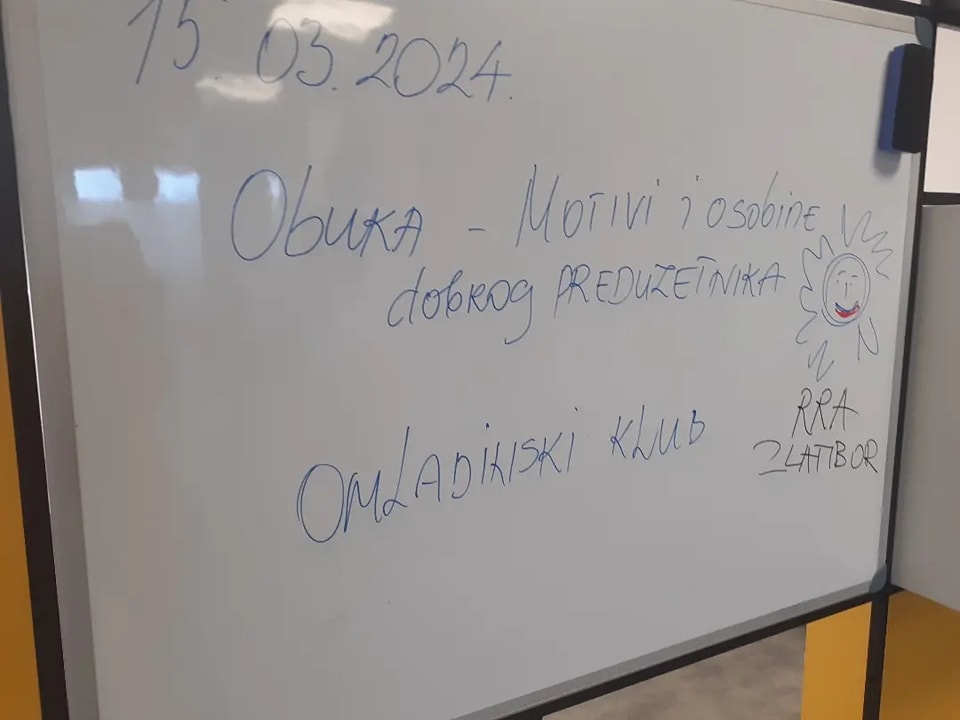 15. 03. 2024.
Obuka - Motivi i osobine
dobrog PREDUZETNIKA
OMLADINSKI KLUB
RRA
ZLATIBOR